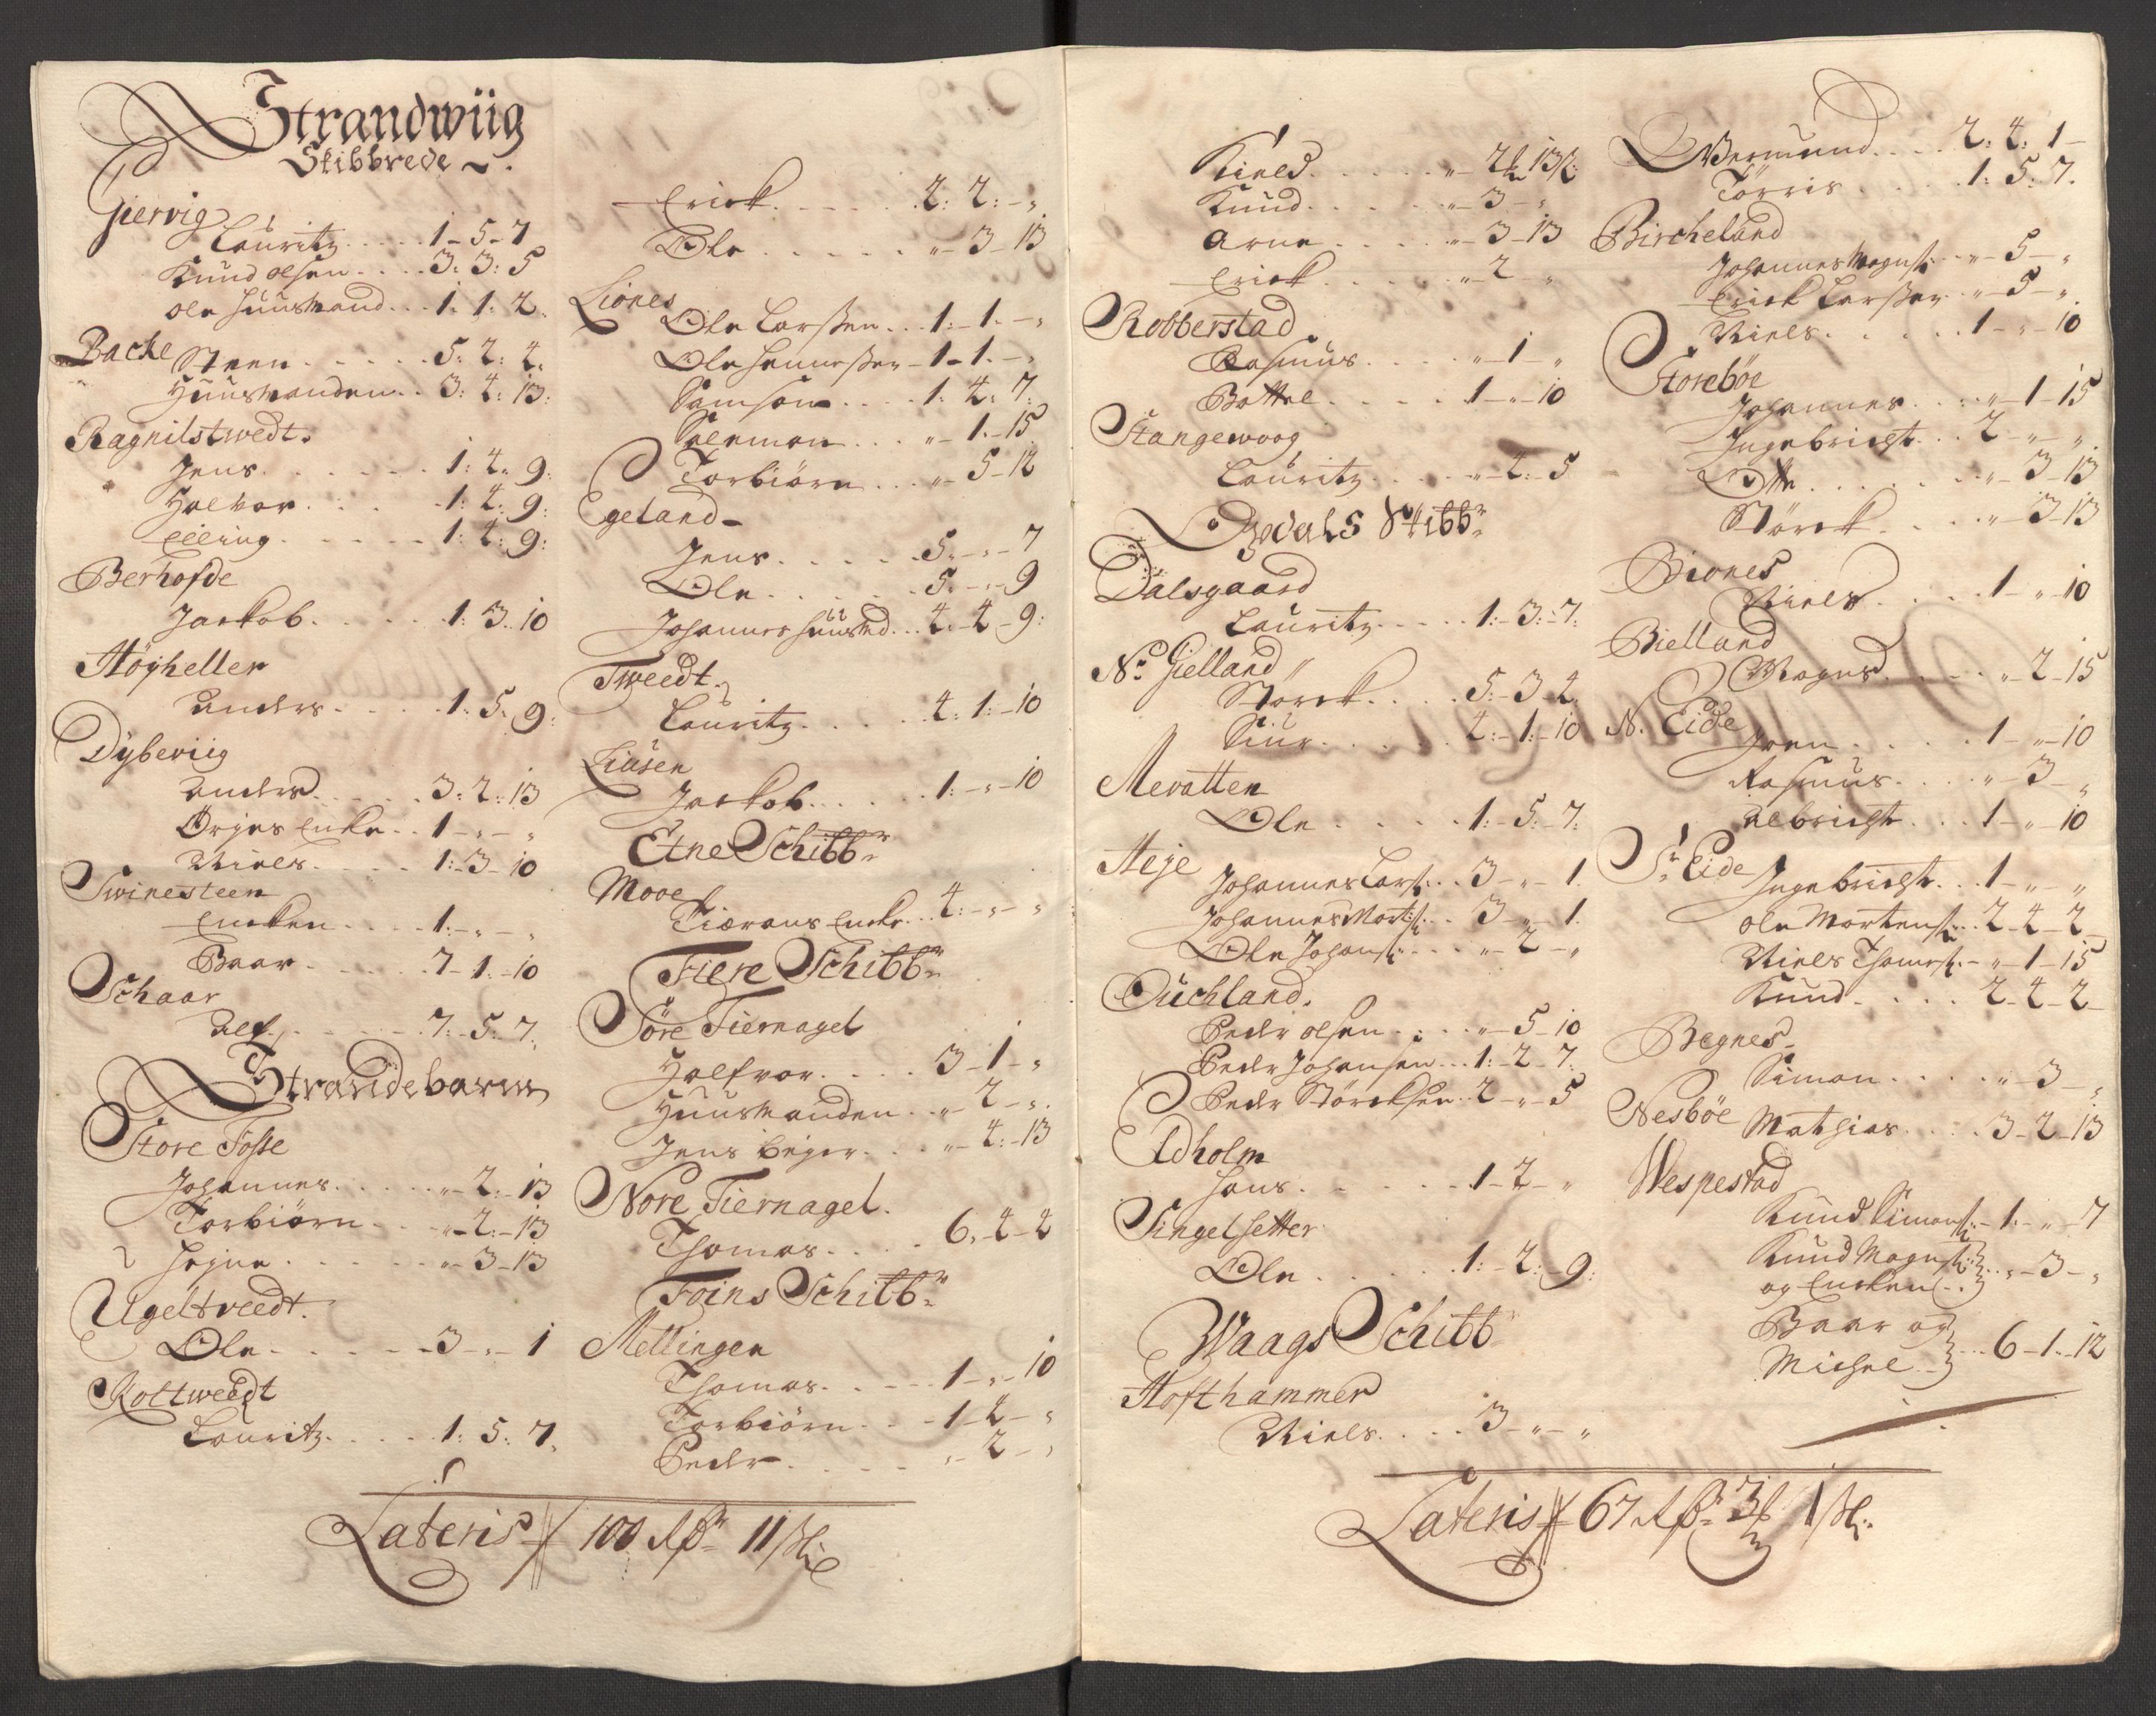 Strandwiig
Skibbrede
Giervig
Lauritz 1-5-7
Knud olsen 3: 3: 5
ole huusmand 1. 1. 2.
Bache
Steen 5: 2: 4.
Huusmanden 3: 4: 13:
Ragnilstwedt.
Jens 1: 4. 9:
Halvor 1: 4. 9:
Elling 1: 4. 9:
Berhofde
Jackob 1: 3. 10
Höyheller
Anders 1: 5. 9:
Dybeviig
Anders 3: 2: 13
Örjes Encke 1 - " - "
Niels 1:-3-10
Swinesteen
Encken 1:- " - "
Baar 7-1-10
Schaar
Alf 7:-5-7.
Strandebarm
Store Fosse
Johannes "-2:-13
Torbiörn "-2:-13
Hogne "-3-13
Ugeltvedt.
Ole 3 - " - 1
Koltweedt
Lauritz 1: 5: 7.
Erick 2: 2: - "
Ole " - 3 - 13
Liones
Ole Larssen 1:-1.- "
Ole Hanssen 1-1.- "
Samson 1: 4: 7.
Salamon "-1.-15
Torbiörn "-5-12
Egeland
Jens 5.- " - 7
Ole 5.- " - 9
Johannes huusmd 4.-4-9:
Tweedt.
Lauritz 4: 1:-10
Liusen
Jackob 1:- " -10
Etne Schibbr
Mooe
Tiærans Encke 4:- " - "
Fiere Schibbr
Söre Tiernagel
Halfvor 3-1- "
Huusmanden "-2- "
Jens Beyer "-4:-13
Nore Tiernagel.
Thomas 6.-4-4
Foins Schibbr
Mellingen
Thomas 1- " -10
Torbiörn 1-4- "
Peder "-2- "
Lateris 100 Rdr 11 s.
Kield "-2 13
Knud "-3- "
Arne "-3-13
Erick "-2 "
Robberstad
Rasmus "-1- "
Bottel 1- " -10
Stangewoog
Lauritz "-4:-5
Opdals Skibbr
Dalsgaard
Lauritz 1:-3:-7.
No. Gielland
Störck 5:-3-4.
Siur 4:-1:-10
Mevatten
Ole 1:-5:-7:
Heje
Johannes Lars. 3- " -1.
Johannes Mort. 3- " -1.
Ole Johans. "-2- "
Ouchland.
Peder olsen "-5-10
Peder Johansen 1:-2-7.
Peder Störcksen 2- " -5
Adholm
Hans 1-2- "
Singelsetter
Ole 1:-2:-9:
Waags Schibb
Hofthammer
Niels 3- " - "
Wermund 2: 4: 1-
Törris 1: 5: 7.
Bircheland
Johannes Magns. "-5- "
Erick Larssen "-5- "
Niels 1- " -10
Storeböe
Johannes "-1-15
Ingebricht 2- " - "
Otte "-3-13
Störck "-3-13
Biones
Niels 1- " -10
Bielland
Magnus "-2-15
N. Eide
Iven 1- " -10
Rasmus "-3- "
Albricht 1- " -10
Sr Eide
Ingebricht 1- " - "
Ole Mortens. 2-4-2
Niels Thomes. "-1-15
Knud 2-4-2
Begnes
Simon "-3- "
Nesböe
Mathias 3-2-13
Wespestad
Knud Simons. 1:- " -7
Knud Magns.
og Encken "-3- "
Baar og
Michel 6-1-12
Lateris 67 Rdr 3 1 s.